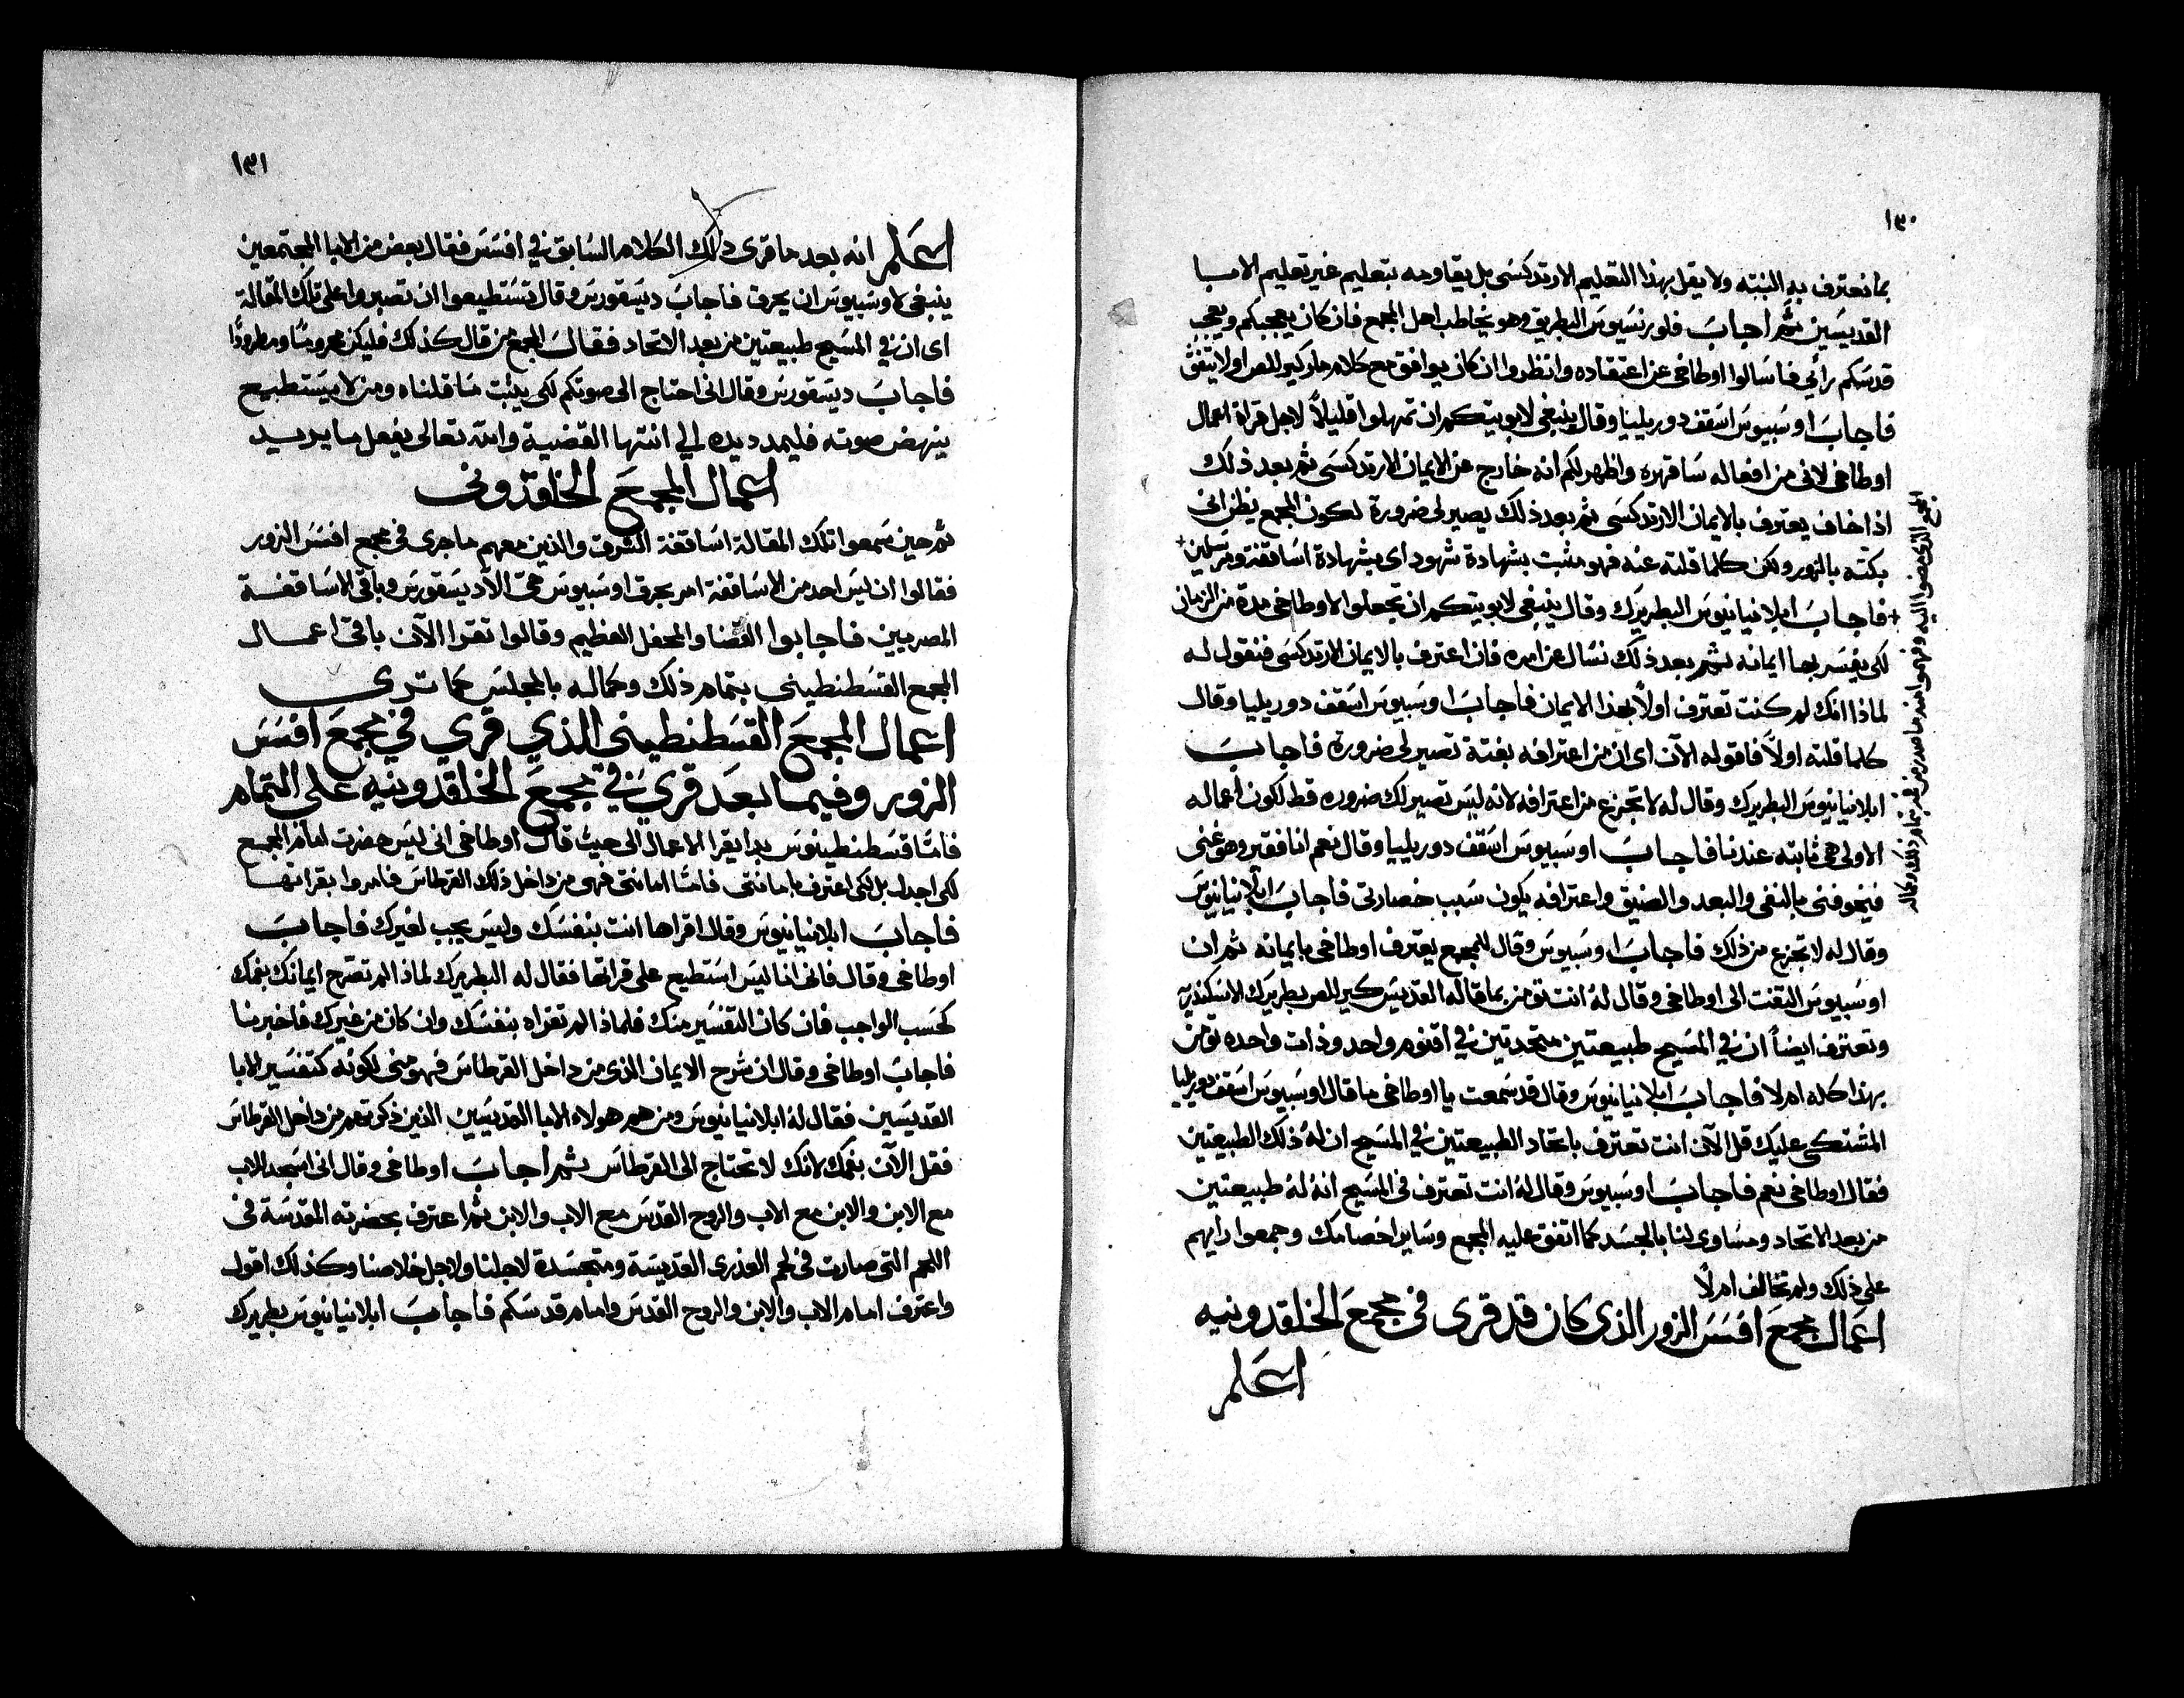 ١٣٠
بما نعترف به البته ولا يقل بهذا التعليم الارتدكسى بل يقاومه بتعليم غير تعليم الابا
القديسين ثم اجاب فلورنسيوس البطريق وهو يخاطب اهل المجمع فان كان يعجبكم ويعجب
قدسكم رائي فاسالوا اوطاخى عن اعتقاده وانظروا ان كان يوافق مع كلام مار كيرللس اولا يتفق
فاجاب اوسبيوس اسقف دوريليا وقال ينبغى لابويتكم ان تمهلوا قليلاً لاجل قراة اعمال
اوطاخى لانى من افعاله ساقهره واظهر لكم انه خارج عن الايمان الارتدكسى ثم بعد ذلك
اذا خاف يعترف بالايمان الارتدكسى ثم بعد ذلك يصير لى ضرورة لكون المجمع يظن انى
بكته بالزور ولكن كلما قلته عنه فهو مثبت بشهادة شهود اى بشهادة اساقفة ومرسلين +
+ فاجاب ابلانيانيوس البطريرك وقال ينبغى لابويتكم ان تجعلوا لاوطاخى مدة من الزمان
لكى يفسر بها ايمانه ثم بعد ذلك نسال عن امره فان اعترف بالايمان الارتدكسى فنقول له
لماذا انك لم كنت تعترف اولاً بهذا الايمان فاجاب اوسبيوس اسقف دوريليا وقال
كلما قلته اولاً فاقوله الآن اى ان من اعترافه بغتة تصير لى ضرورة فاجاب
ابلانيانيوس البطريرك وقال له لا تجزع من اعترافه لانه ليس تصير لك ضروره قط لكون اعماله
الاولى هى ثابته عندنا فاجاب اوسبيوس اسقف دوريليا وقال نعم انا فقير وهو غنى
فيخوفنى بالنفى والبعد والضيق واعترافه يكون سبب خصارتى فاجاب ابلانيانيوس
وقال له لا تجزع من ذلك فاجاب اوسبيوس وقال للمجمع يعترف اوطاخى بايمانه ثم ان
اوسبيوس التفت الى اوطاخى وقال له انت تؤمن بما قاله القديس كيرللس بطريرك الاسكندرية
وتعترف ايضاً ان في المسيح طبيعتين متحدتين في اقنوم واحد وذات واحده تؤمن
بهذا كله ام لا فاجاب ابلانيانيوس وقال قد سمعت يا اوطاخى ما قال اوسبيوس اسقف دوريليا
المشتكى عليك قل الآن انت تعترف باتحاد الطبيعتين في المسيح ان له ذلك الطبيعتين
فقال اوطاخى نعم فاجاب اوسبيوس وقال له انت تعترف فى المسيح انه له طبيعتين
من بعد الاتحاد ومساوى لنا بالجسد كما اتفق عليه المجمع وساير اخصامك وجمعوا رايهم
على ذلك ولم تخالف ام لا
اعمال مجمع افسس الزور الذى كان قد قرى فى مجمع الخلقدونيه
اعلم
المجمع الذى مضوا اليه وفهموا منه ما صدر من بتمام ذلك وكماله
١٣١
اعلم انه بعد ما قرى ذلك الكلام السابق في افسس فقال بعض من الابا المجتمعين
ينبغى لاوسبيوس ان يحرق فاجاب ديسقورس وقال تستطيعوا ان تصبروا على تلك المقالة
اى ان في المسيح طبيعتين من بعد الاتحاد فقال المجمع من قال كذلك فليكن محروماً ومطروداً
فاجاب ديسقورس وقال انى احتاج الى صوتكم لكى يثبت ما قلناه ومن لا يستطيع
ينهض صوته فليمدد يده الي انتها القضية والله تعالى يفعل ما يريد
اعمال المجمع الخلقدونى
ثم حين سمعوا تلك المقالة اساقفة الشرق والذين معهم ما جرى فى مجمع افسس الزور
فقالوا ان ليس احد من الاساقفة امر بحرق اوسبيوس حتى الا ديسقورس وباقى الاساقفة
المصريين فاجابوا القضا والمحفل العظيم وقالوا تقرا الآن باقى اعمال
المجمع القسطنطينى بتمام ذلك وكماله بالمجلس كما ترى
اعمال المجمع القسطنطينى الذي قري في مجمع افسس
الزور وفيما بعد قري في مجمع الخلقدونيه على التمام
فامّا قسطنطينوس بدا يقرا الاعمال الى حيث قال اوطاخى انى ليس حضرت امام المجمع
لكى اجدل بل لكى اعترف بامانتى فامّا امانتى فهى من داخل ذلك القرطاس فامروا بقراتها
فاجاب ابلانيانيوس وقال اقراها انت بنفسك وليس يجب لغيرك فاجاب
اوطاخى وقال فانى انا ليس استطيع على قراتها فقال له البطريرك لماذا لم تشرح ايمانك بفمك
كحسب الواجب فان كان التفسير منك فلماذا لم تقراه بنفسك وان كان من غيرك فاخبرنا
فاجاب اوطاخى وقال ان شرح الايمان الذى من داخل القرطاس فهو منى لكونه كتفسير الابا
القديسين فقال له ابلانيانيوس ومن هم هولاء الابا القديسين الذين ذكرتهم من داخل القرطاس
فقل الآن بفمك لانك لا تحتاج الى القرطاس ثم اجاب اوطاخى وقال انى اسجد للاب
مع الابن والابن مع الاب والروح القدس مع الاب والابن ثم اعترف بحضرته المقدسة فى
اللحم التى صارت فى لحم العذرى القديسة ومتجسدة لاجلنا ولاجل خلاصنا وكذلك اقول
واعترف امام الاب والابن والروح القدس وامام قدسكم فاجاب ابلانيانيوس بطريرك